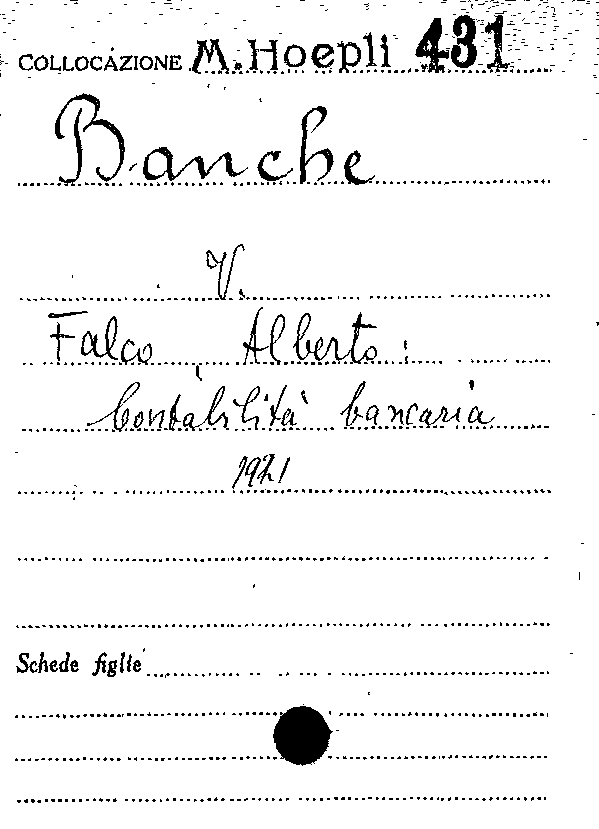 COLLOCAZIONE M. Hoepli 431
Banche
V.
Falco, Alberto:
Contabilità bancaria
1921
Schede figlie